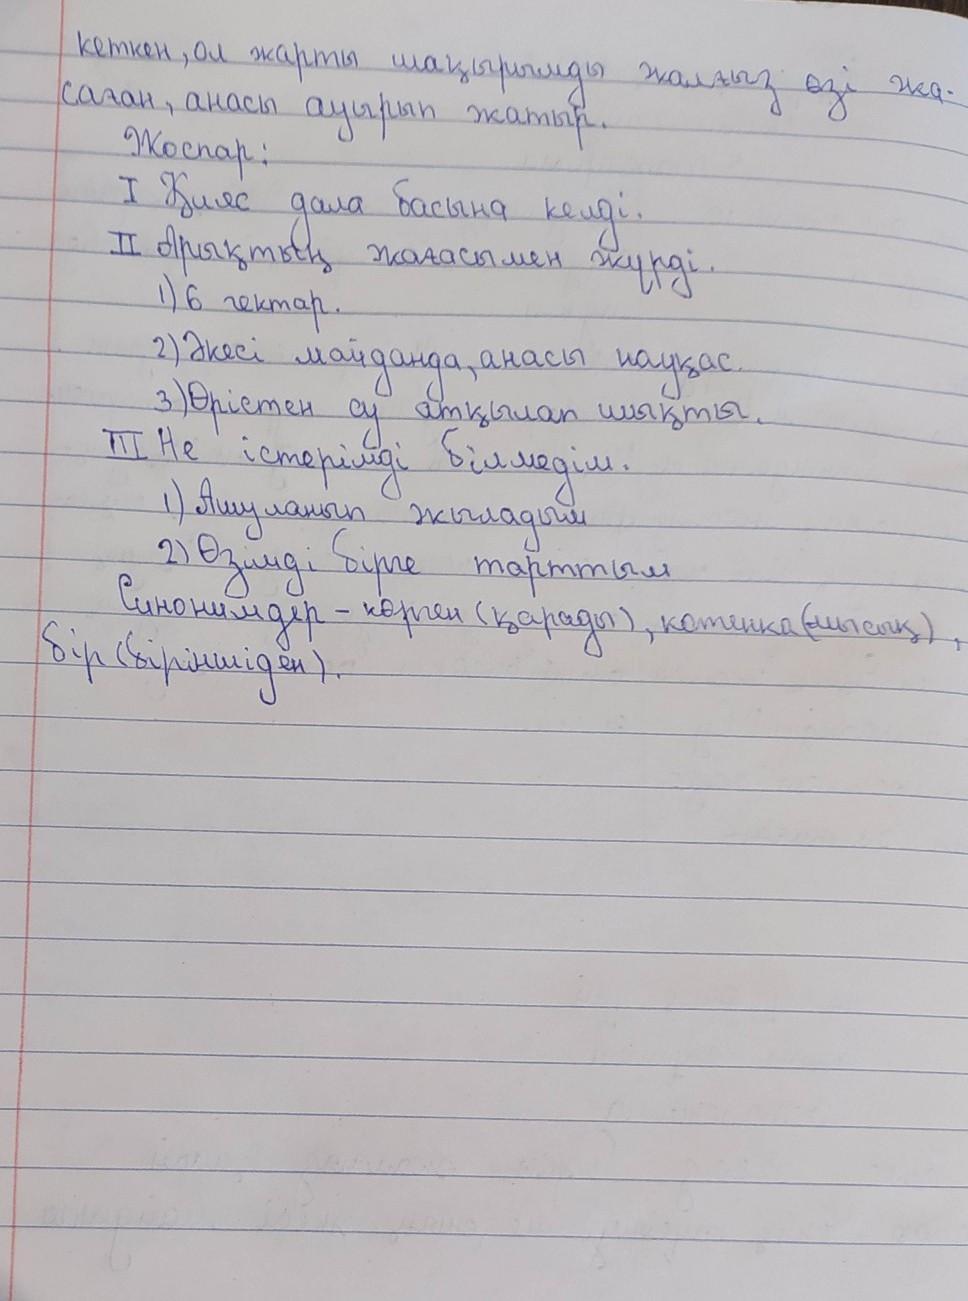 кеткен, ол жарты шақырымды жалғыз өзі жа-
саған, анасы ауырып жатыр.
Жоспар:
I Қияс дала басына келді.
II Арықтың жағасымен жүрді.
1) 6 гектар.
2) Әкесі майданда, анасы науқас.
3) Өрістен су атқылап шықты.
III Не істерімді білмедім.
1) Ашуланып жыладым
2) Өзімді бірге тарттым
Синонимдер - көрген (қарады), котенка (мысық),
бір (біріншіден).